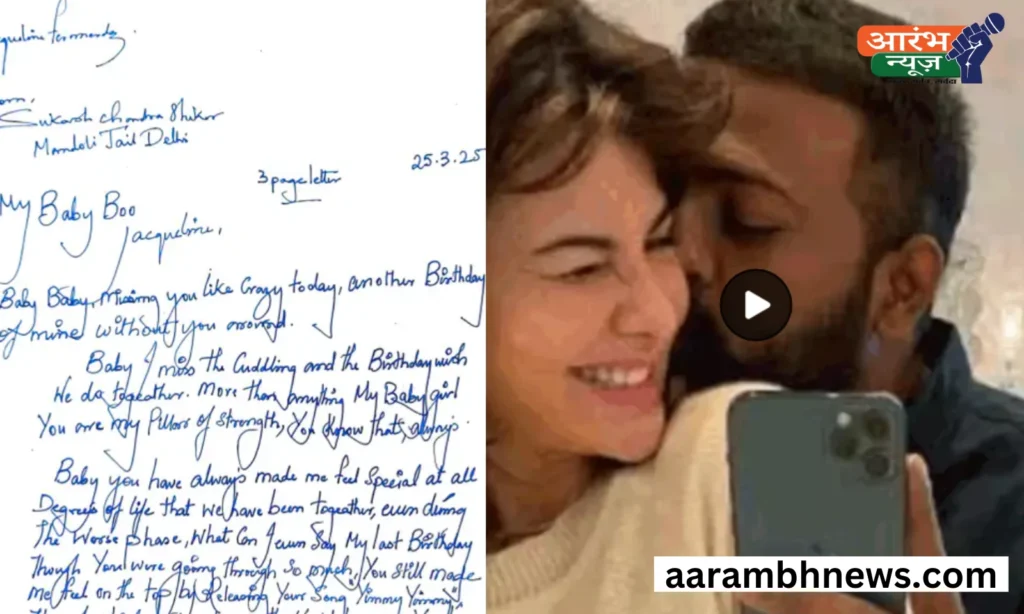 queline Fernandez
Sukash Chandra Shekar
Mandoli Jail Delhi
25.3.25
3 page letter
My Baby Boo
Jacqueline,
Baby Baby, Missing you like Crazy today, another Birthday
of mine without you around.
Baby I miss the Cuddling and the Birthday wish
We do togeather. More than anything My Baby girl
You are my Pillar of Strength, You Know that, always.
Baby you have always made me feel Special at all
Degrees of life that we have been togeather, even during
The Worse phase, What Can I even Say My last Birthday
Though You were going through So much, You still made
me feel on the top by Releasing Your Song Yimmy Yimmy,
आरंभ
न्यूज़
aarambhnews.com